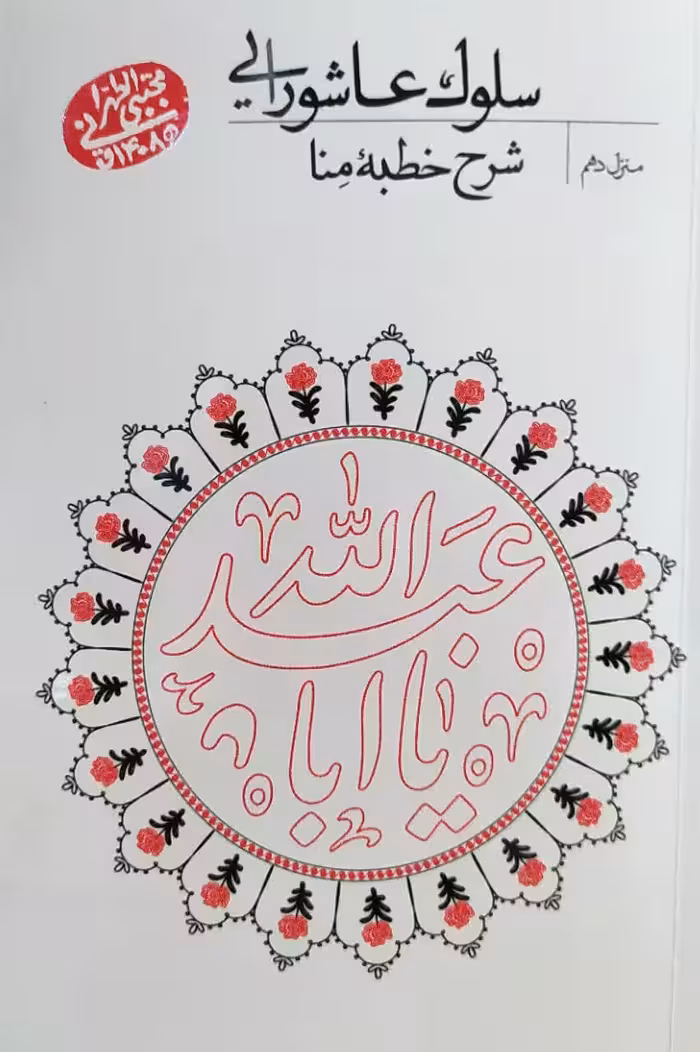 سلوک عاشورایی
منزل دهم
شرح خطبهٔ مِنا
مجتبی الطهرانی
۱۴۰۸ق
یا اباعبدالله